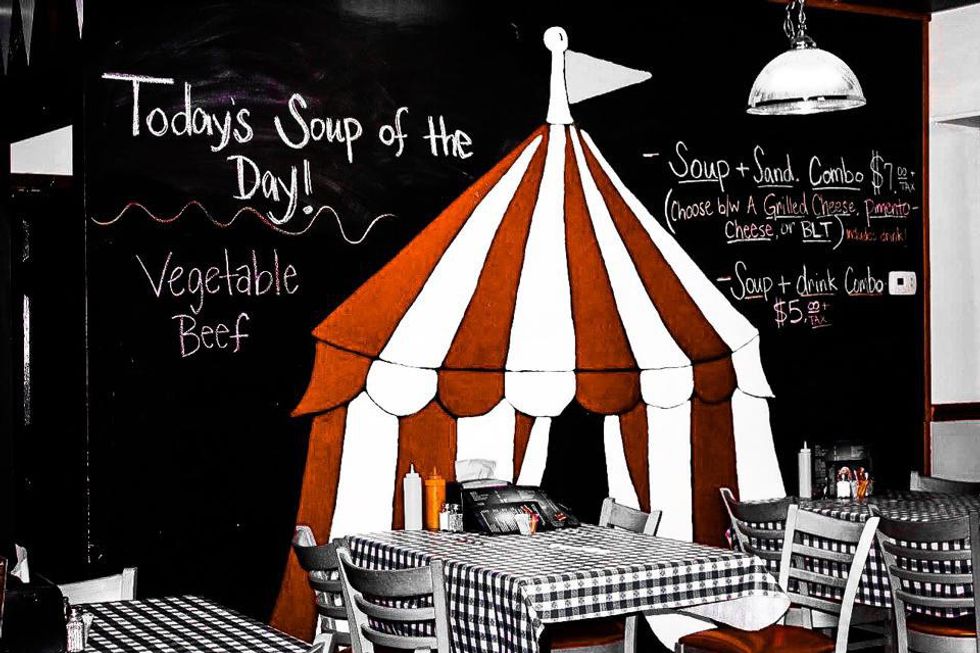 Today's Soup of the
Day!
Vegetable
Beef
- Soup + Sand. Combo $7.00 + TAX
(Choose b/w A Grilled Cheese, Pimento-
Cheese, or BLT) includes drink!
- Soup + drink Combo
$5.00 + TAX